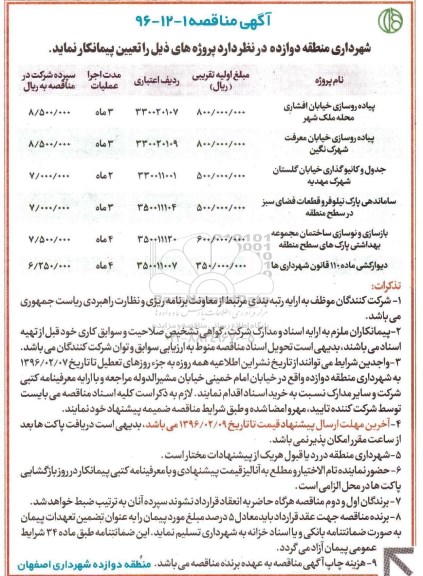 آگهی مناقصه ۱-۱۲-۹۶
شهرداری منطقه دوازده در نظر دارد پروژه های ذیل را تعیین پیمانکار نماید.
نام پروژه مبلغ اولیه تقریبی (ریال) ردیف اعتباری مدت اجرا عملیات سپرده شرکت در مناقصه به ریال
پیاده روسازی خیابان افشاری محله ملک شهر ۸۰۰/۰۰۰/۰۰۰ ۳۳۰۰۲۰۱۰۷ ۳ ماه ۸/۵۰۰/۰۰۰
پیاده روسازی خیابان معرفت شهرک نگین ۸۰۰/۰۰۰/۰۰۰ ۳۳۰۰۲۰۱۰۹ ۳ ماه ۸/۵۰۰/۰۰۰
جدول و کانیوگذاری خیابان گلستان شهرک مهدیه ۵۰۰/۰۰۰/۰۰۰ ۳۳۰۰۱۱۰۰۱ ۲ ماه ۷/۰۰۰/۰۰۰
ساماندهی پارک نیلوفر و قطعات فضای سبز در سطح منطقه ۵۰۰/۰۰۰/۰۰۰ ۳۵۰۰۱۱۱۰۴ ۳ ماه ۷/۰۰۰/۰۰۰
بازسازی و نوسازی ساختمان مجموعه بهداشتی پارک های سطح منطقه ۶۰۰/۰۰۰/۰۰۰ ۳۵۰۰۱۱۱۲۰ ۴ ماه ۷/۵۰۰/۰۰۰
دیوارکشی ماده ۱۱۰ قانون شهرداری ها ۳۵۰/۰۰۰/۰۰۰ ۳۵۰۰۱۱۰۰۷ ۴ ماه ۶/۲۵۰/۰۰۰
تذکرات:
۱- شرکت کنندگان موظف به ارایه رتبه بندی مرتبط از معاونت برنامه ریزی و نظارت راهبردی ریاست جمهوری
می باشد.
۲-پیمانکاران ملزم به ارایه اسناد و مدارک شرکت، گواهی تشخیص صلاحیت و سوابق کاری خود قبل از تهیه
اسناد می باشند، بدیهی است تحویل اسناد مناقصه منوط به ارزیابی سوابق و توان شرکت کنندگان می باشد.
۳-واجدین شرایط می توانند از تاریخ نشر این اطلاعیه همه روزه به جزء روزهای تعطیل تا تاریخ ۱۳۹۶/۰۲/۰۷
به شهرداری منطقه دوازده واقع در خیابان امام خمینی خیابان مشیرالدوله مراجعه و با ارایه معرفینامه کتبی
شرکت و سایر مدارک نسبت به خرید اسناد اقدام نمایند. لازم به ذکر است کلیه اسناد مناقصه می بایست
توسط شرکت کننده تایید، مهر و امضا شده و طبق شرایط مناقصه ضمیمه پیشنهاد خود نمایند.
۴- آخرین مهلت ارسال پیشنهاد قیمت تا تاریخ ۱۳۹۶/۰۲/۰۹ می باشد، بدیهی است دریافت پاکت ها بعد
از ساعت مقرر امکان پذیر نمی باشد.
۵- شهرداری منطقه در رد یا قبول هریک از پیشنهادات مختار است.
۶- حضور نماینده تام الاختیار و مطلع به آنالیز قیمت پیشنهادی و با معرفینامه کتبی پیمانکار در روز بازگشایی
پاکت ها در محل الزامی است.
۷-برندگان اول و دوم مناقصه هرگاه حاضر به انعقاد قرارداد نشوند سپرده آنان به ترتیب ضبط خواهد شد.
۸-برنده مناقصه جهت عقد قرارداد باید معادل ۵ درصد مبلغ مورد پیمان را به عنوان تضمین تعهدات پیمان
به صورت ضمانتنامه بانکی و یا اسناد خزانه به شهرداری تسلیم نماید. این ضمانتنامه طبق ماده ۳۴ شرایط
عمومی پیمان آزاد می گردد.
۹-هزینه چاپ آگهی مناقصه به عهده برنده مناقصه می باشد. منطقه دوازده شهرداری اصفهان